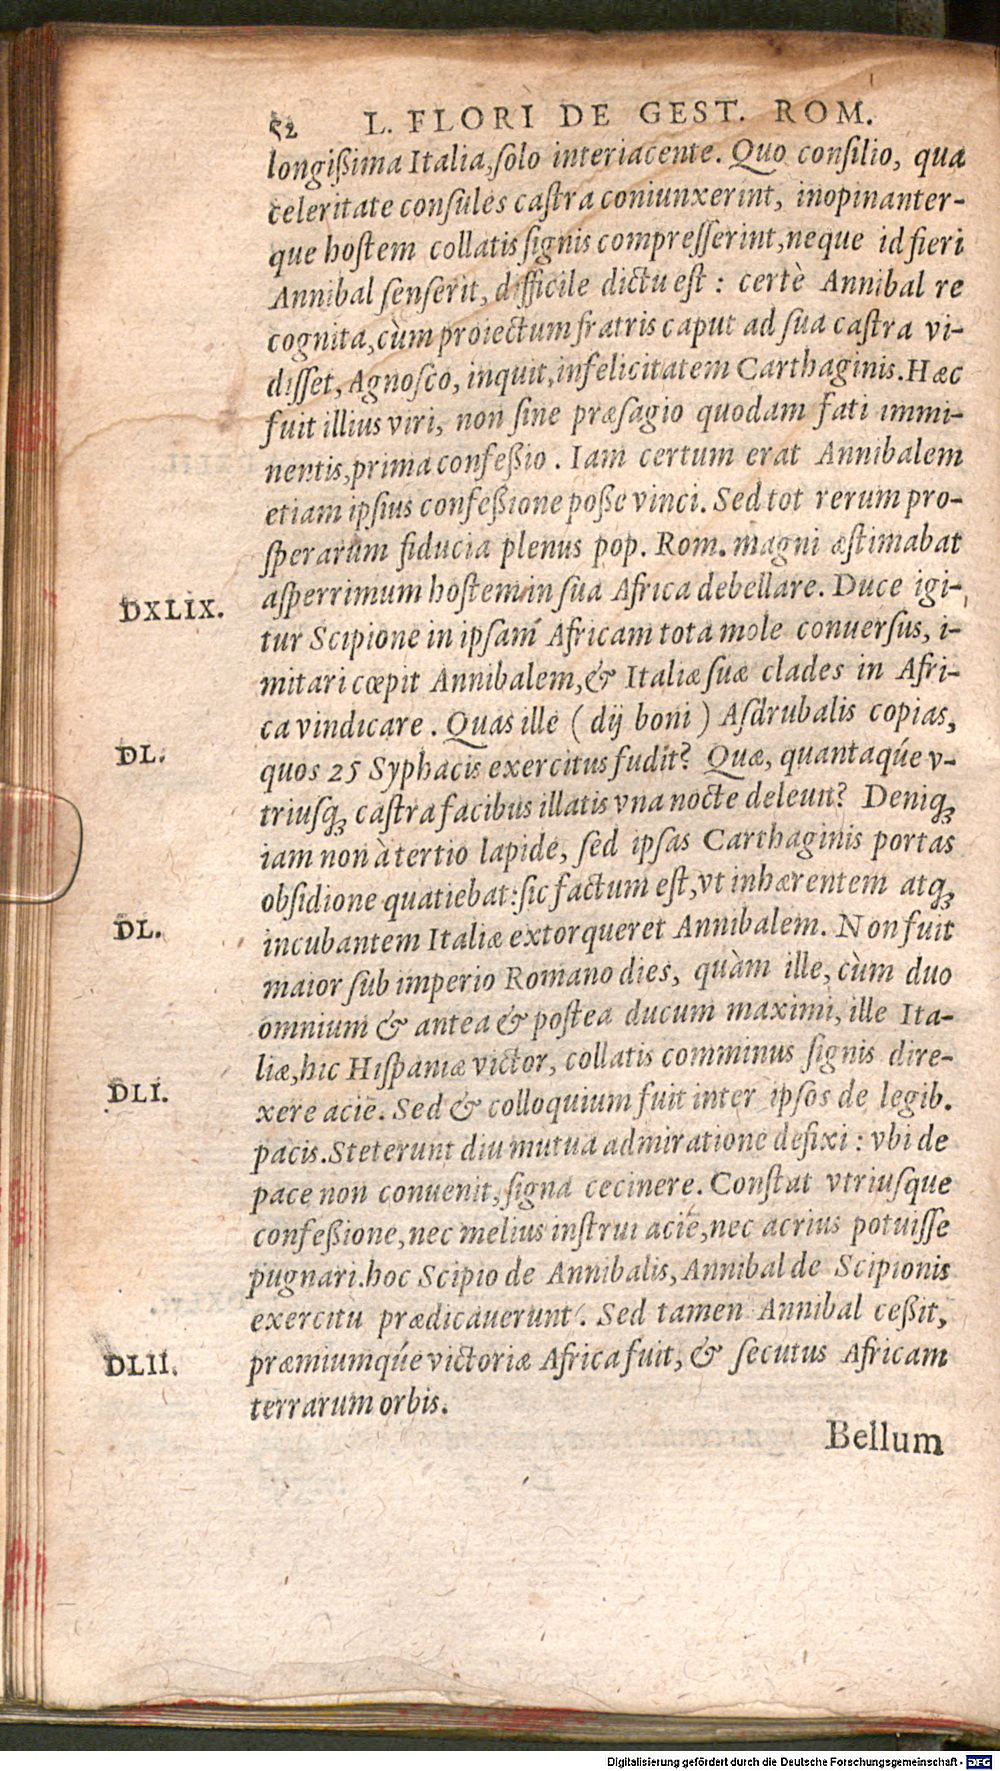 52 L. FLORI DE GEST. ROM.
longißima Italia, ſolo interiacente. Quo conſilio, qua
celeritate conſules caſtra coniunxerint, inopinanter-
que hoſtem collatis ſignis compreſſerint, neque id fieri
Annibal ſenſerit, difficile dictu eſt: certè Annibal re
cognita, cùm proiectum fratris caput ad ſua caſtra vi-
diſſet, Agnoſco, inquit, infelicitatem Carthaginis. Hæc
fuit illius viri, non ſine præſagio quodam fati immi-
nentis, prima confeßio. Iam certum erat Annibalem
etiam ipſius confeßione poße vinci. Sed tot rerum pro-
ſperarum fiducia plenus pop. Rom. magni æſtimabat
aſperrimum hoſtem in ſua Africa debellare. Duce igi-
DXLIX.
tur Scipione in ipſam Africam tota mole conuerſus, i-
mitari cœpit Annibalem, & Italiæ ſuæ clades in Afri-
ca vindicare. Quas ille (dij boni) Aſdrubalis copias,
DL.
quos 25 Syphacis exercitus fudit? Quæ, quantaq́ue v-
triuſq; caſtra facibus illatis vna nocte deleuit? Deniq;
iam non à tertio lapide, ſed ipſas Carthaginis portas
obſidione quatiebat: ſic factum eſt, vt inhærentem atq;
DL.
incubantem Italiæ extorqueret Annibalem. Non fuit
maior ſub imperio Romano dies, quàm ille, cùm duo
omnium & antea & poſtea ducum maximi, ille Ita-
liæ, hic Hiſpaniæ victor, collatis comminus ſignis dire-
DLI.
xere aciē. Sed & colloquium fuit inter ipſos de legib.
pacis. Steterunt diu mutua admiratione defixi: vbi de
pace non conuenit, ſigna cecinere. Conſtat vtriuſque
confeßione, nec melius inſtrui aciē, nec acrius potuiſſe
pugnari. hoc Scipio de Annibalis, Annibal de Scipionis
exercitu prædicauerunt. Sed tamen Annibal ceßit,
DLII.
præmiumq́ue victoriæ Africa fuit, & ſecutus Africam
terrarum orbis.
Bellum
Digitalisierung gefördert durch die Deutsche Forschungsgemeinschaft - DFG